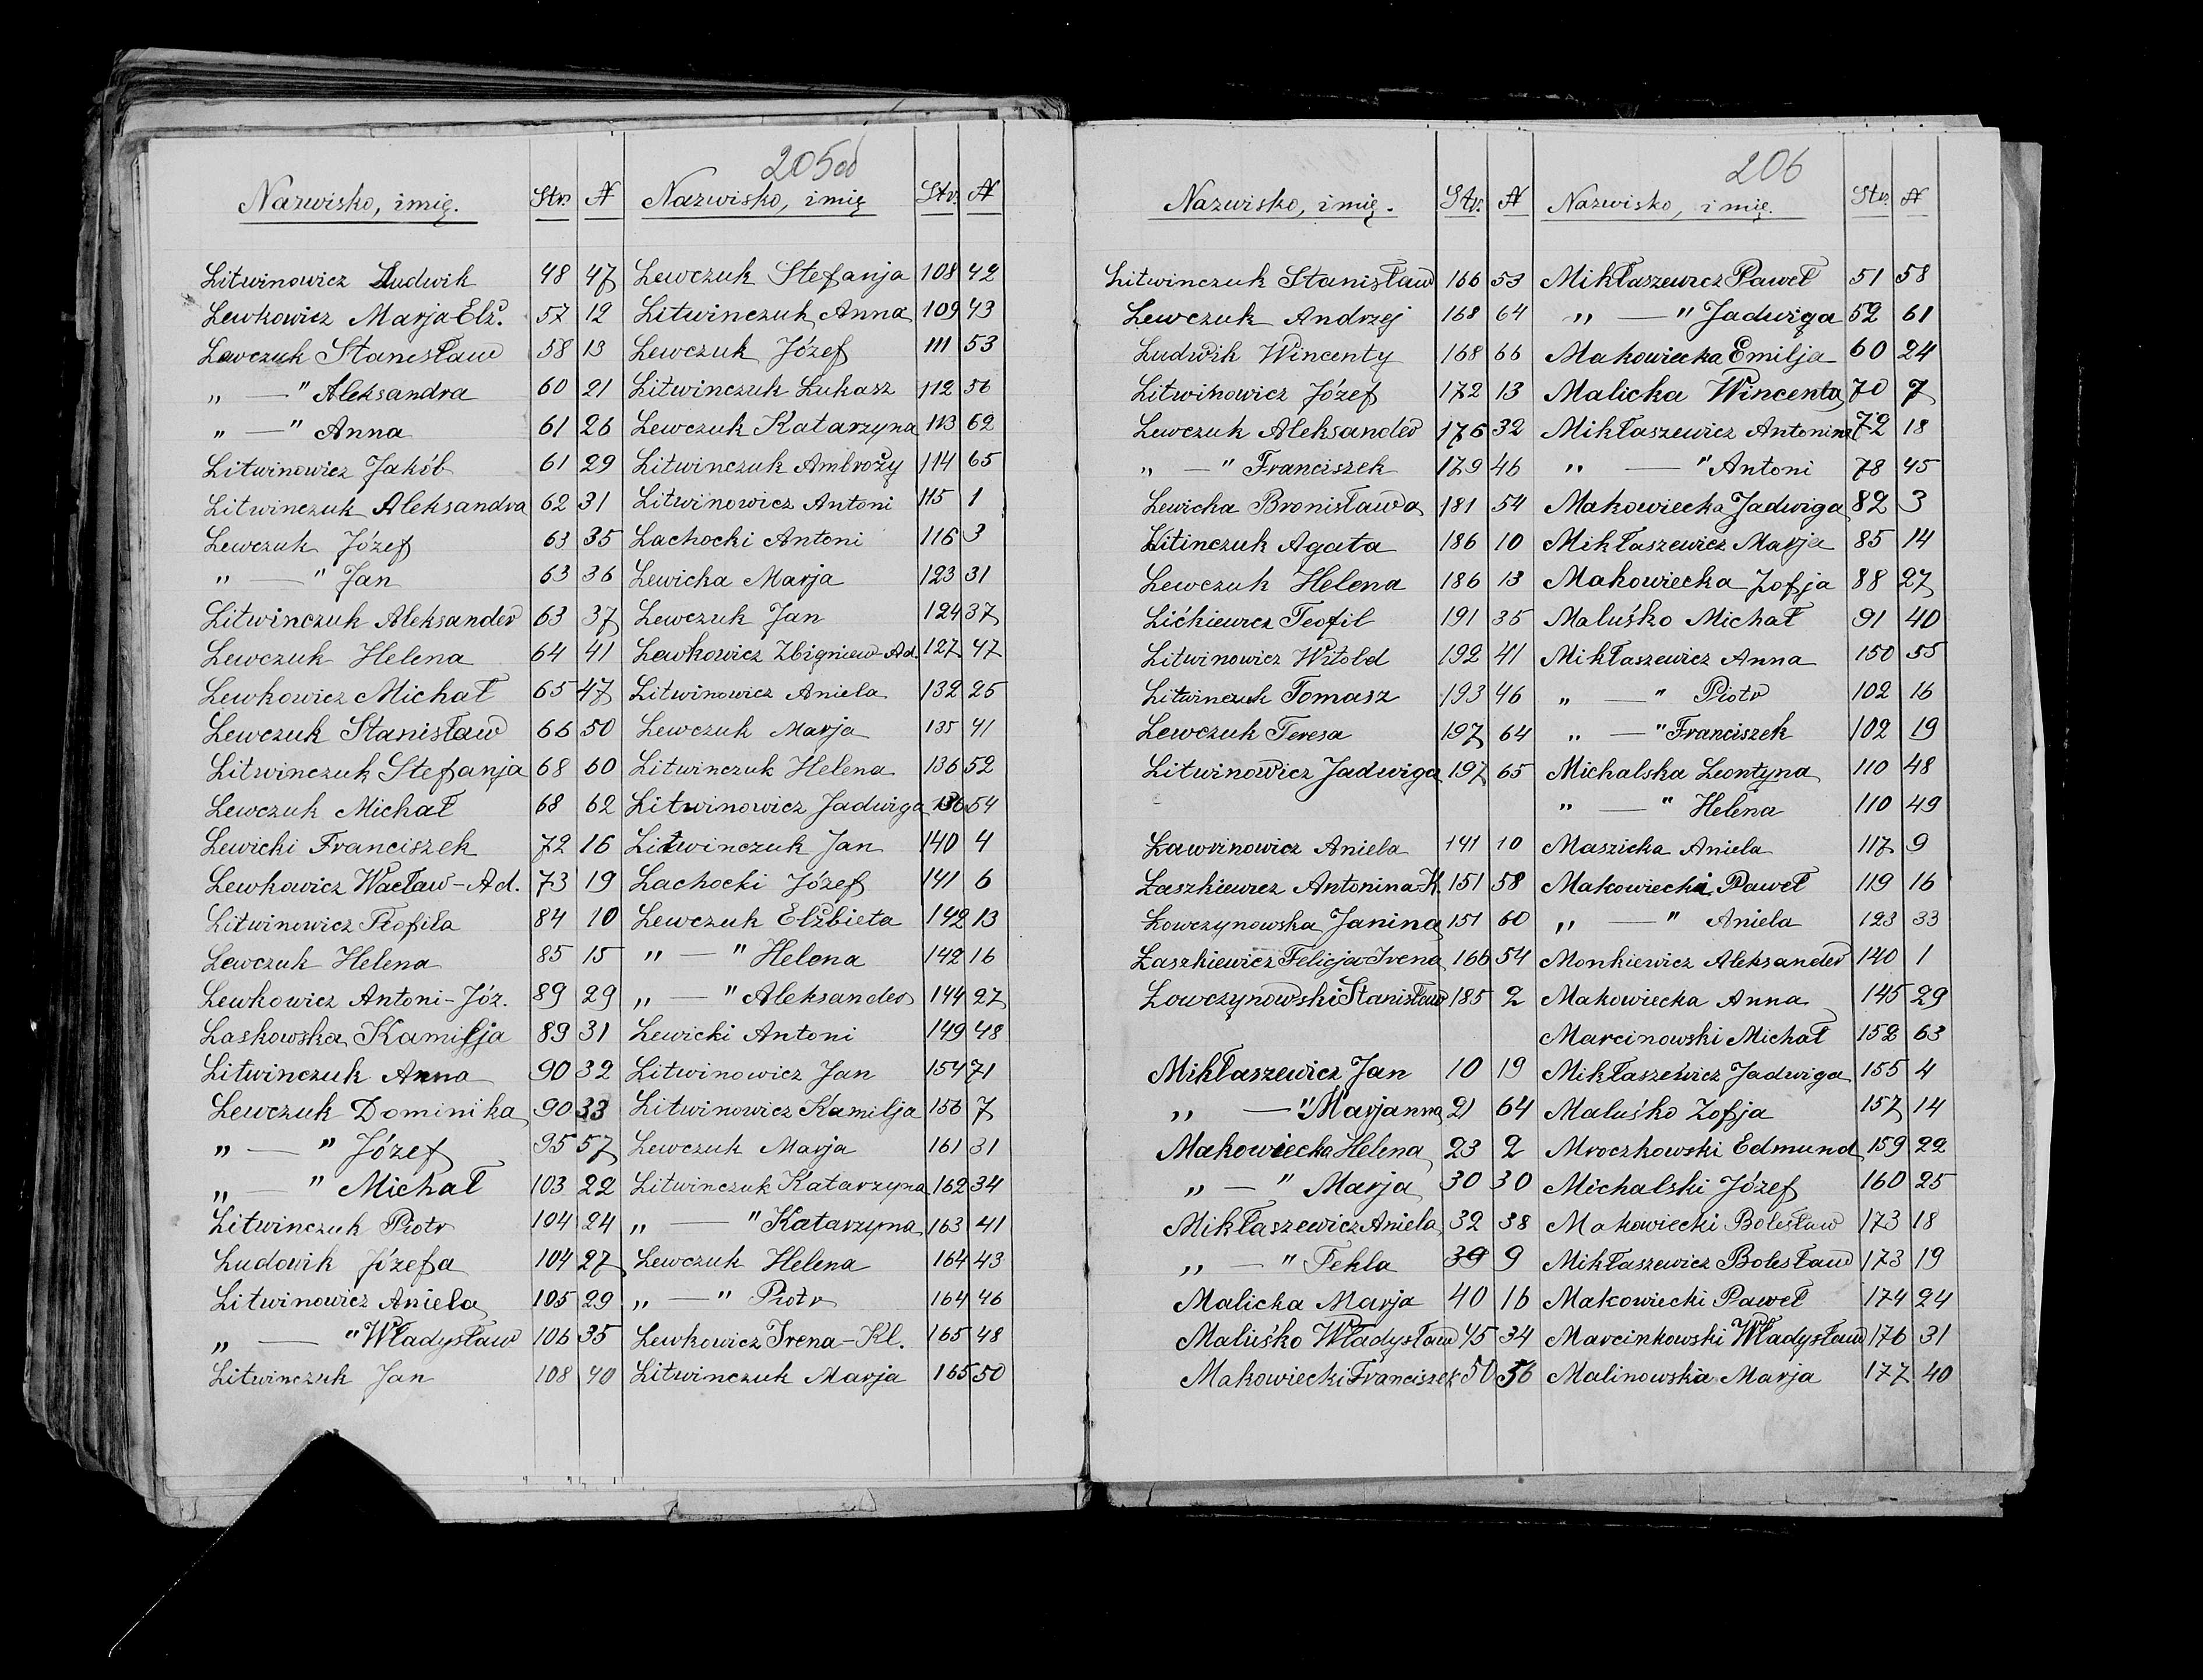 205 od
Nazwisko, imię. Str. №
Litwinowicz Ludwik 48 47
Lewkowicz Marja-Elż. 57 12
Lewczuk Stanisław 58 13
„ — " Aleksandra 60 21
„ — " Anna 61 26
Litwinowicz Jakób 61 29
Litwinczuk Aleksandra 62 31
Lewczuk Józef 63 35
„ — " Jan 63 36
Litwinczuk Aleksander 63 37
Lewczuk Helena 64 41
Lewkowicz Michał 65 47
Lewczuk Stanisław 66 50
Litwinczuk Stefanja 68 60
Lewczuk Michał 68 62
Lewicki Franciszek 72 16
Lewkowicz Wacław-Ad. 73 19
Litwinowicz Teofila 84 10
Lewczuk Helena 85 15
Lewkowicz Antoni-Józ. 89 29
Laskowska Kamilja 89 31
Litwinczuk Anna 90 32
Lewczuk Dominika 90 33
„ — " Józef 95 57
„ — " Michał 103 22
Litwinczuk Piotr 104 24
Ludowik Józefa 104 27
Litwinowicz Aniela 105 29
„ — " Władysław 106 35
Litwinczuk Jan 108 40
Nazwisko, imię Str. №
Lewczuk Stefanja 108 42
Litwinczuk Anna 109 43
Lewczuk Józef 111 53
Litwinczuk Łukasz 112 56
Lewczuk Katarzyna 113 62
Litwinczuk Ambroży 114 65
Litwinowicz Antoni 115 1
Lachocki Antoni 116 3
Lewicka Marja 123 31
Lewczuk Jan 124 37
Lewkowicz Zbigniew-Ad. 127 47
Litwinowicz Aniela 132 25
Lewczuk Marja 135 41
Litwinczuk Helena 136 52
Litwinowicz Jadwiga 136 54
Litwinczuk Jan 140 4
Lachocki Józef 141 6
Lewczuk Elżbieta 142 13
„ — " Helena 142 16
„ — " Aleksander 144 27
Lewicki Antoni 149 48
Litwinowicz Jan 154 71
Litwinowicz Kamilja 156 7
Lewczuk Marja 161 31
Litwinczuk Katarzyna 162 34
„ — " Katarzyna 163 41
Lewczuk Helena 164 43
„ — " Piotr 164 46
Lewkowicz Irena-Kl. 165 48
Litwinczuk Marja 165 50
206
Nazwisko, imię. Str. №
Litwinczuk Stanisław 166 53
Lewczuk Andrzej 168 64
Ludwik Wincenty 168 66
Litwinowicz Józef 172 13
Lewczuk Aleksander 176 32
„ — " Franciszek 179 46
Lewicka Bronisława 181 54
Litinczuk Agata 186 10
Lewczuk Helena 186 13
Lićkiewicz Teofil 191 35
Litwinowicz Witold 192 41
Litwinczuk Tomasz 193 46
Lewczuk Teresa 197 64
Litwinowicz Jadwiga 197 65
Ławrinowicz Aniela 141 10
Łaszkiewicz Antonina-K. 151 58
Łowczynowska Janina 151 60
Łaszkiewicz Felicja-Irena 166 54
Łowczynowski Stanisław 185 2
Mikłaszewicz Jan 10 19
„ — " Marjanna 21 64
Makowiecka Helena 23 2
„ — " Marja 30 30
Mikłaszewicz Aniela 32 38
„ — " Tekla 39 9
Malicka Marja 40 16
Maluśko Władysław 45 34
Makowiecki Franciszek 50 56
Nazwisko, imię. Str. №
Mikłaszewicz Paweł 51 58
„ — " Jadwiga 52 61
Makowiecka Emilja 60 24
Malicka Wincenta 70 7
Mikłaszewicz Antonina 72 18
„ — " Antoni 78 45
Makowiecka Jadwiga 82 3
Mikłaszewicz Marja 85 14
Makowiecka Zofja 88 27
Maluśko Michał 91 40
Mikłaszewicz Anna 150 55
„ — " Piotr 102 16
„ — " Franciszek 102 19
Michalska Leontyna 110 48
„ — " Helena 110 49
Maszicka Aniela 117 9
Makowiecki Paweł 119 16
„ — " Aniela 123 33
Monkiewicz Aleksander 140 1
Makowiecka Anna 145 29
Marcinowski Michał 152 63
Mikłaszewicz Jadwiga 155 4
Maluśko Zofja 157 14
Mroczkowski Edmund 159 22
Michalski Józef 160 25
Makowiecki Bolesław 173 18
Mikłaszewicz Bolesław 173 19
Makowiecki Paweł 174 24
Marcinkowski Władysław 176 31
Malinowska Marja 177 40